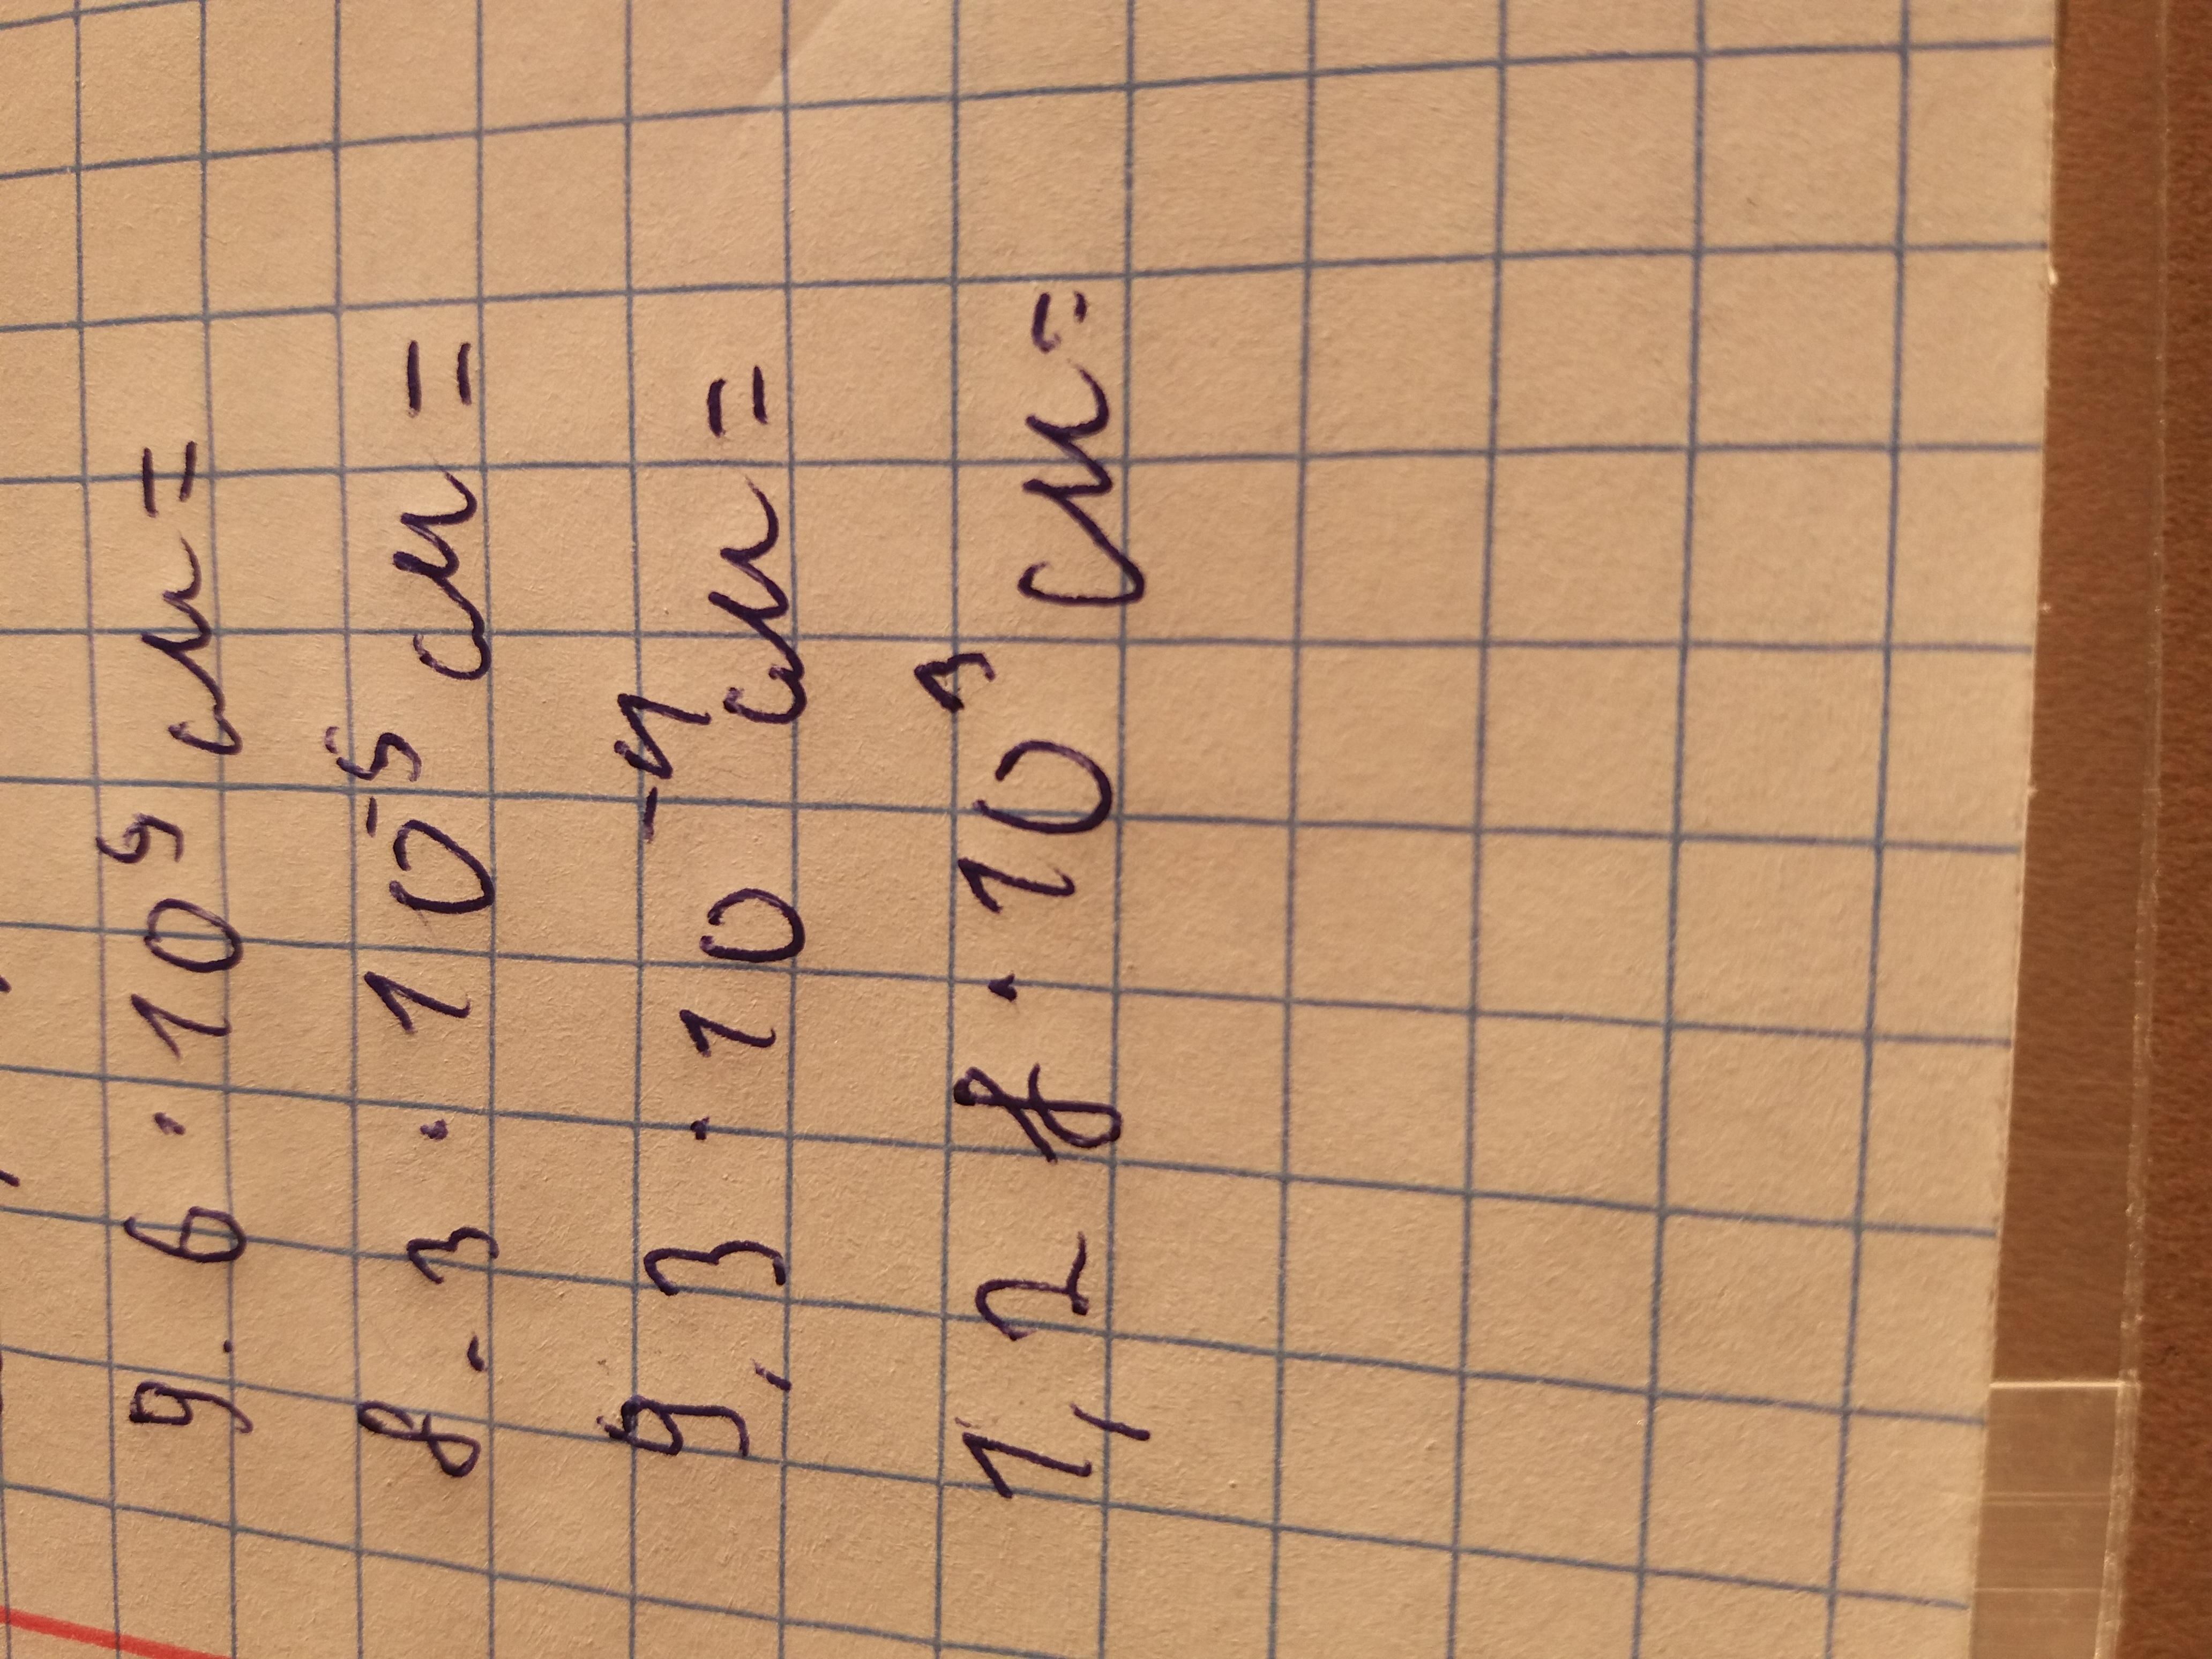 9.6 · 10⁹ см =
8.3 · 10⁻⁵ см =
9,3 · 10⁻⁴ см =
1,28 · 10³ см =